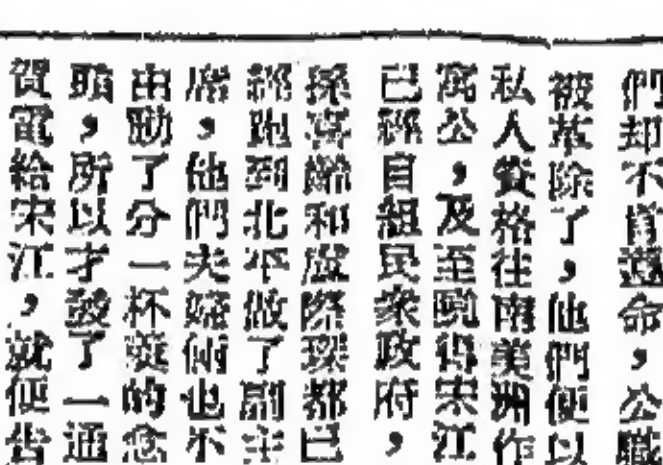 們却不肯遵命，公職
被革除了，他們便以
私人資格往南美洲作
寓公，及至曉得宋江
已經自組民衆政府，
孫 和盧 都已
經跑到北平做了副主
席，他們夫婦 也不
由動了分一杯羹的念
頭，所以才發了一通
賀電給宋江，就便